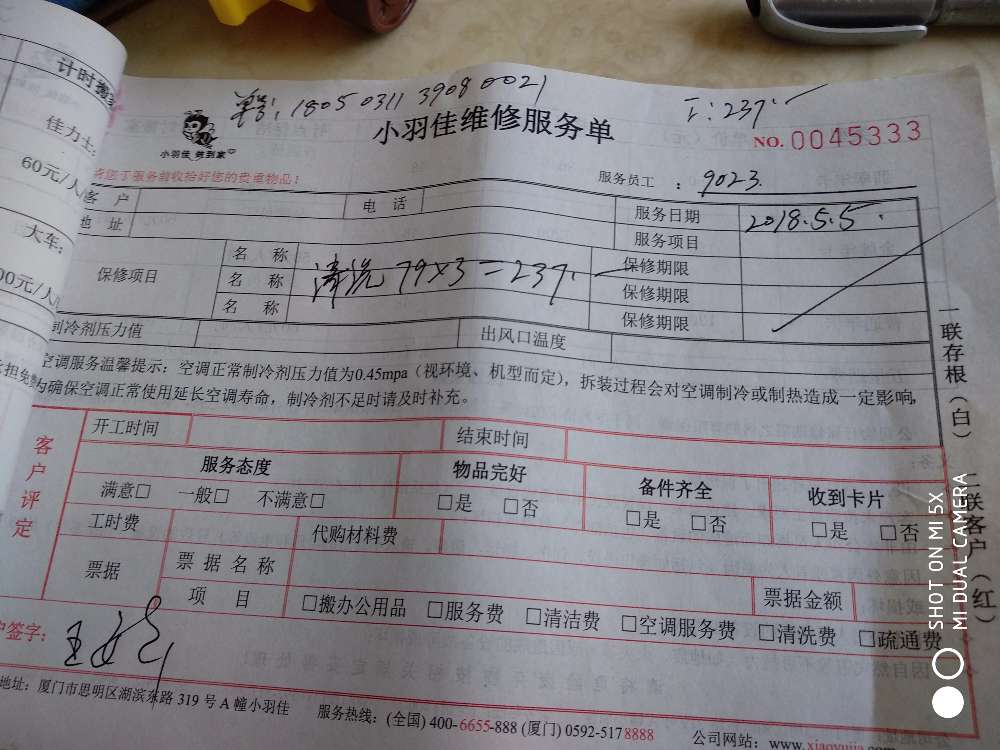 计时搬
佳力士:
60元/人
大车:
00元/人
单号: 18050311 3908 0021
工: 237.
小羽佳 做到家
小羽佳维修服务单
NO. 0045333
将您于服务前收拾好您的贵重物品!
服务员工 : 9023.
客 户 电 话 服务日期 2018.5.5.
地 址 服务项目
保修项目 名 称 保修期限
名 称 清洗 79×3=237. 保修期限
名 称 保修期限
制冷剂压力值 出风口温度
空调服务温馨提示: 空调正常制冷剂压力值为0.45mpa (视环境、机型而定), 拆装过程会对空调制冷或制热造成一定影响,
为确保空调正常使用延长空调寿命, 制冷剂不足时请及时补充。
客户评定
开工时间 结束时间
服务态度 物品完好 备件齐全 收到卡片
满意□ 一般□ 不满意□ □是 □否 □是 □否 □是 □否
工时费 代购材料费
票据 票据名称 票据金额
项 目 □搬办公用品 □服务费 □清洁费 □空调服务费 □清洗费 □疏通费
户签字:
地址: 厦门市思明区湖滨东路 319 号 A 幢小羽佳 服务热线: (全国) 400-6655-888 (厦门) 0592-5178888 公司网站: www.xiaoyujia.com
一联存根(白) 二联客户(红)
SHOT ON MI 5X
MI DUAL CAMERA